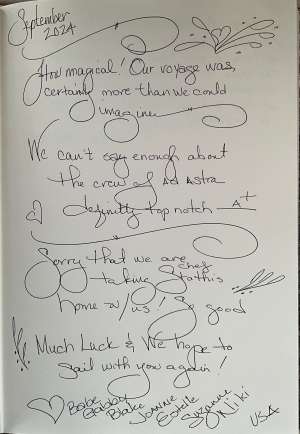 September
2024
How magical! Our voyage was,
certainly more than we could
imagine
We can't say enough about
the crew of Ad Astra
definitly top notch A+
Sorry that we are
taking chef Stathis
home w/ us! So good
Much Luck & We hope to
sail with you again!
Babe Gabby Blake Joannie Estelle Suzanne Niki
USA